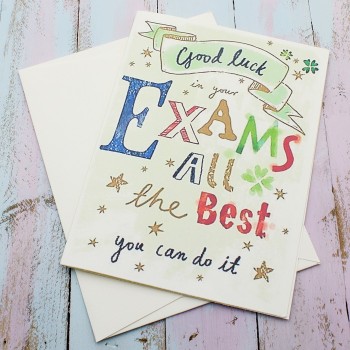 Good luck
in your
EXAMS
All
the Best
you can do it